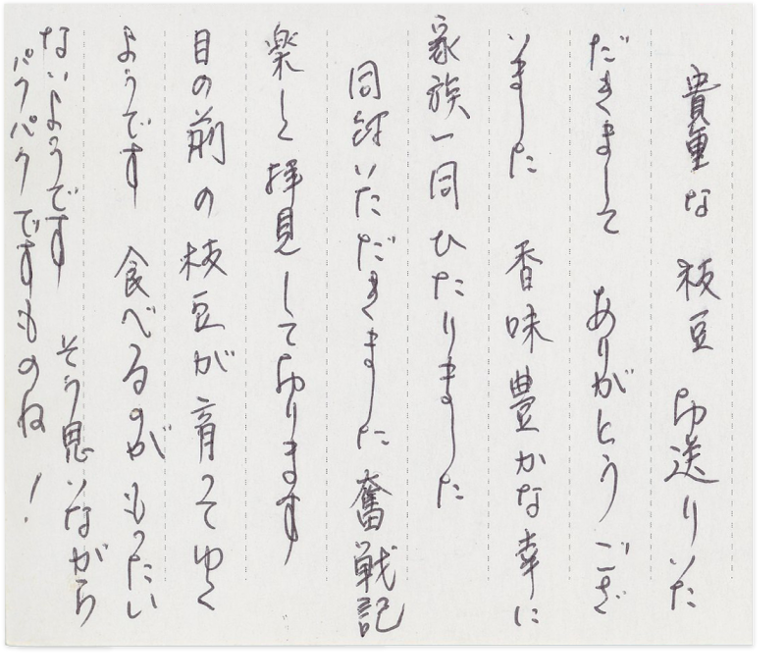 貴重な 枝豆 お送りいた
だきまして ありがとうござ
いました 香味豊かな幸に
家族一同ひたりました
同封いただきました奮戦記
楽しく拝見しております
目の前の枝豆が育ってゆく
ようです 食べるのがもったい
ないようです そう思いながら
パクパクですものね!